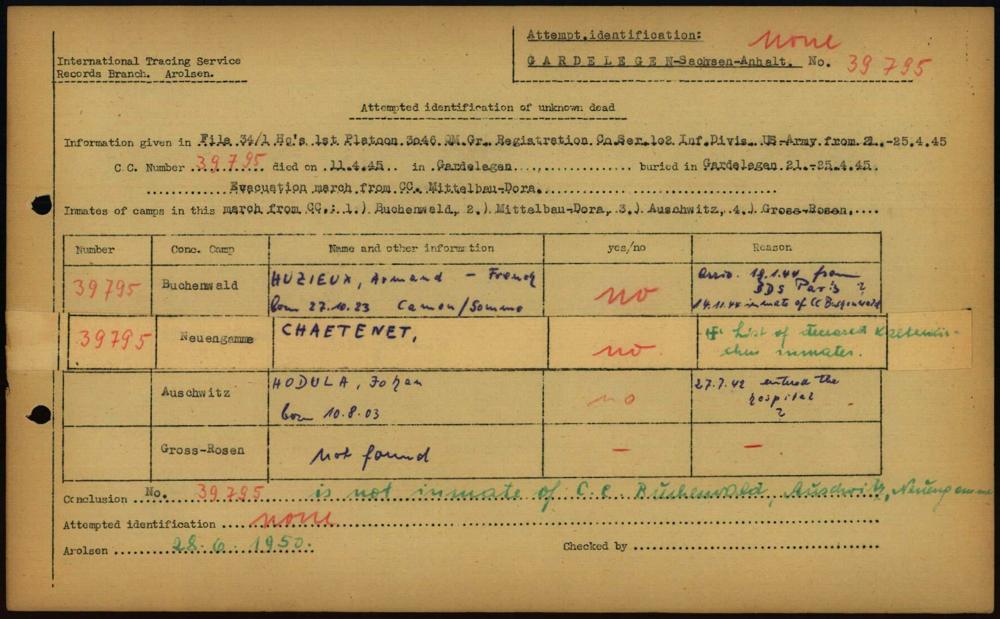 Attempt.identification: none
International Tracing Service
Records Branch. Arolsen.
GARDELEGEN-Sachsen-Anhalt. No. 39795
Attempted identification of unknown dead
Information given in File 34/1 Hq's 1st Platoon 3046 QM Gr. Registration Co Ser 102 Inf Divis. US-Army from 21.-25.4.45
C.C. Number 39795 died on 11.4.45 in Gardelegen buried in Gardelegen 21.-25.4.45.
Evacuation march from CC. Mittelbau-Dora.
Inmates of camps in this march from CC.: 1.) Buchenwald, 2.) Mittelbau-Dora, 3.) Auschwitz, 4.) Gross-Rosen.
Number Conc. Camp Name and other information yes/no Reason
39795 Buchenwald HUZIEUX, Armand - French no 19.1.44 from
born 27.10.23 Camon/Somme BDS Paris ?
14.11.44 inmate of CC Buchenwald
39795 Neuengamme CHAETENET, no List of deceased
inmates.
Auschwitz HODULA, Johan no 27.7.42 entered the
born 10.8.03 hospital
?
Gross-Rosen not found - -
Conclusion No. 39795 is not inmate of C.C. Buchenwald, Auschwitz, Neuengamme
Attempted identification none
Arolsen 28.6.1950. Checked by